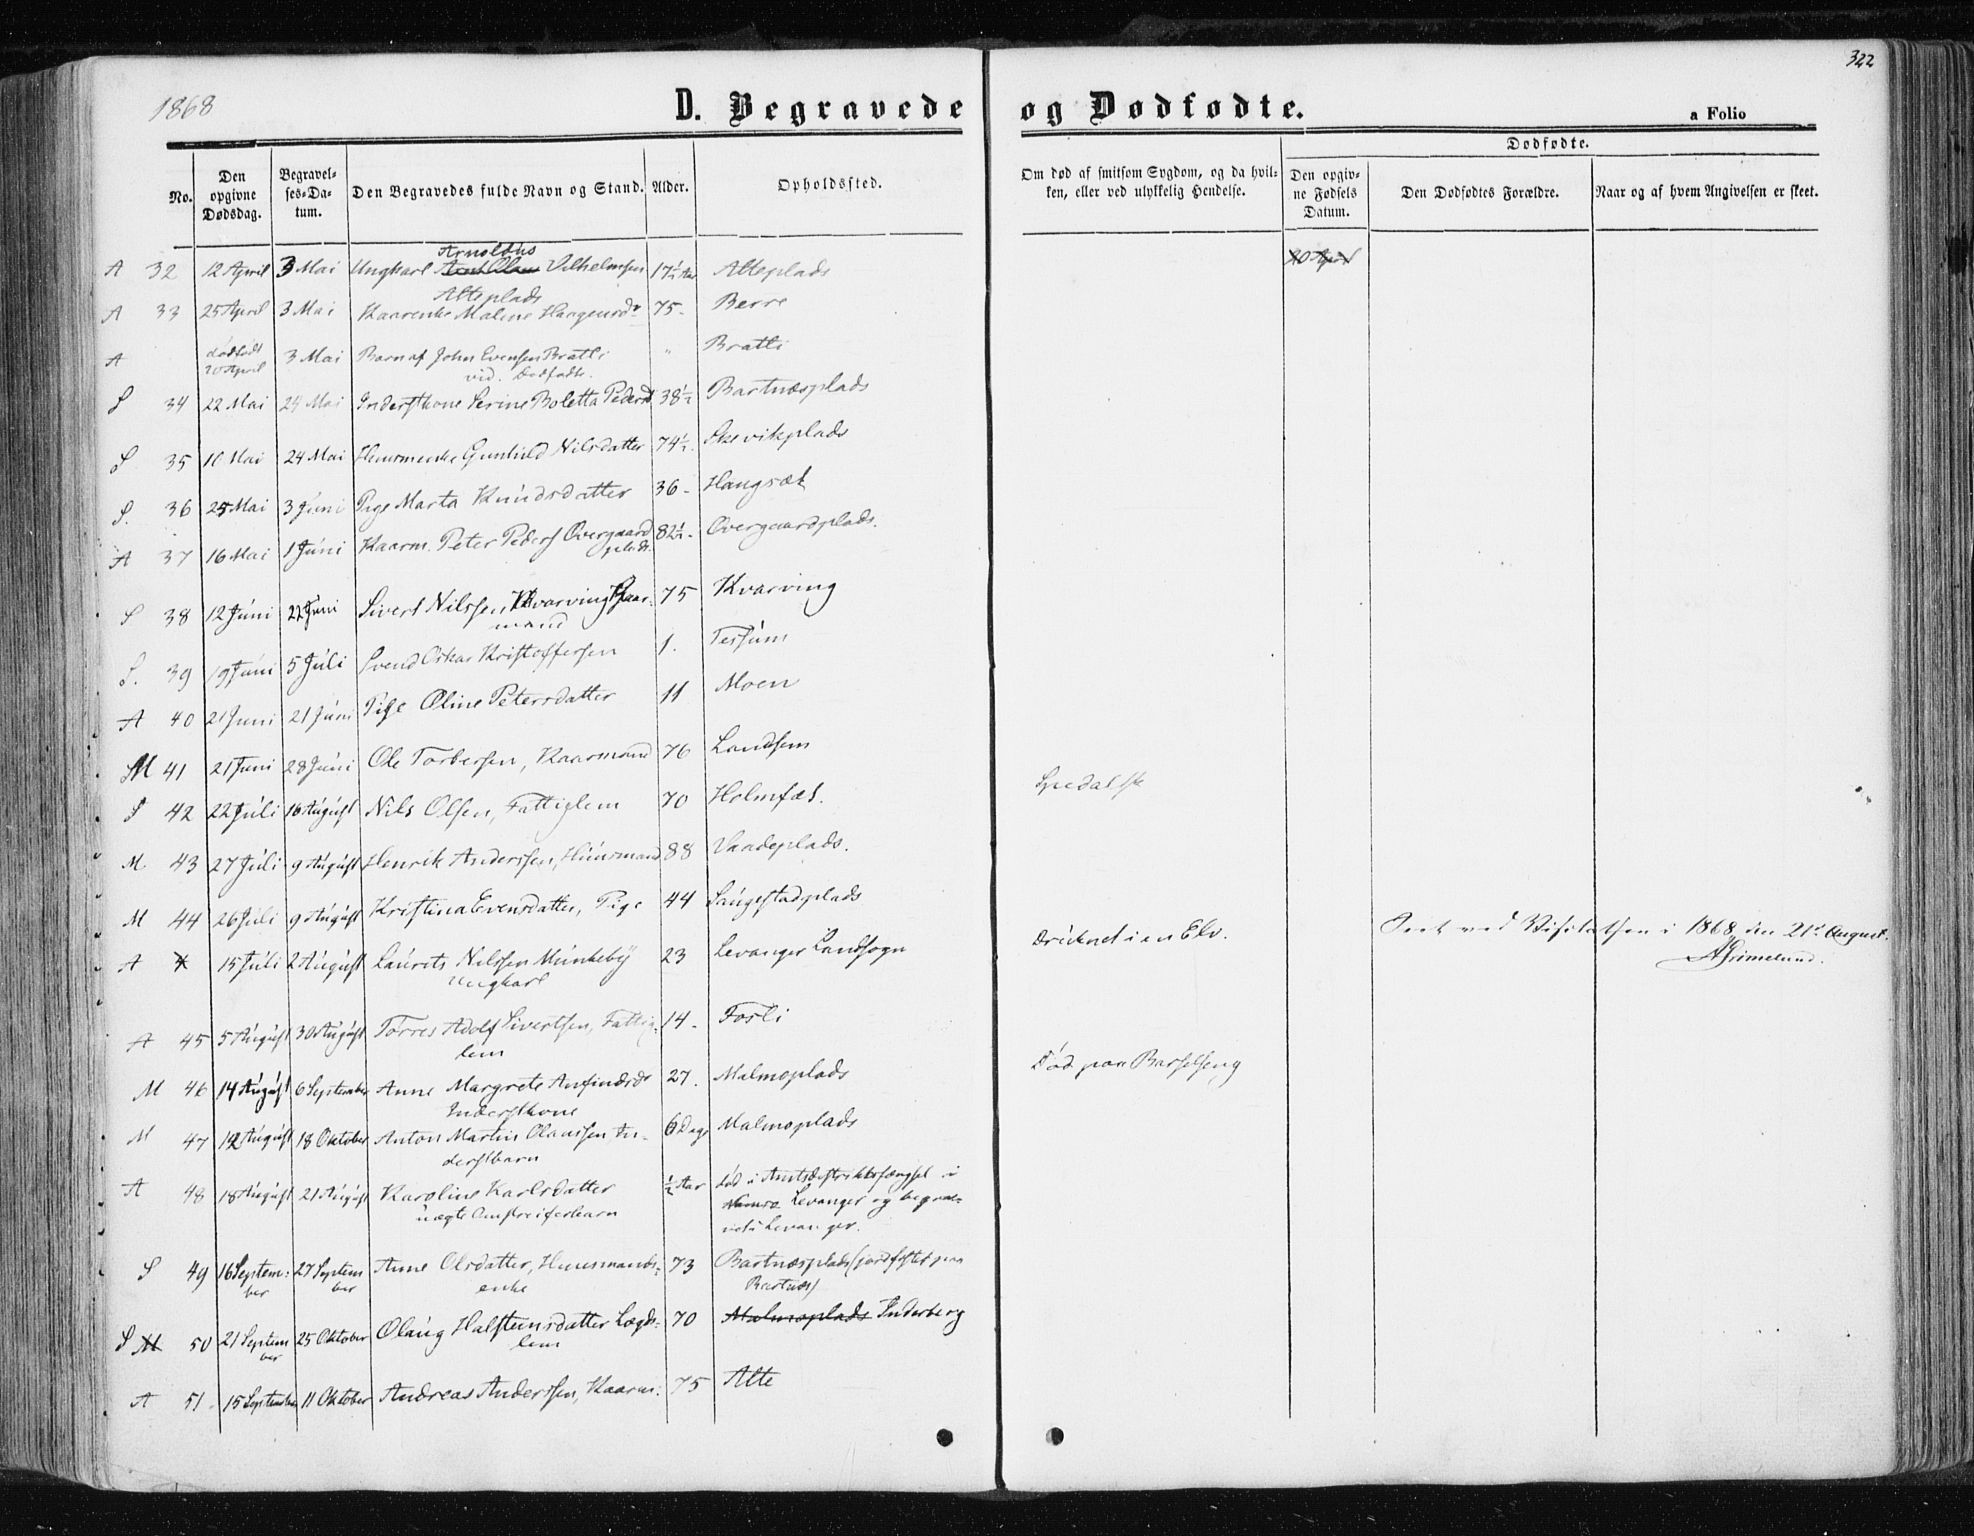 322
1868
D. Begravede og Dødfødte.
a Folio
No.
Den opgivne Dødsdag.
Begravelses-Datum.
Den Begravedes fulde Navn og Stand.
Alder.
Opholdssted.
Om død af smitsom Sygdom, og da hvilken, eller ved ulykkelig Hendelse.
Dødfødte.
Den opgivne Fødsels Datum.
Den Dødfødtes Forældre.
Naar og af hvem Angivelsen er skeet.
A 32 12 April 3 Mai Ungkarl Arnoldus Vilhelmsen Alteplads 17½ Aar Alteplads 20 April
A 33 25 April 3 Mai Kaarenke Malene Haagensdr 75 - Berre
A dødfødt 20 April 3 Mai Barn af John Evensen Bratli " Bratli
vid. Dødfødte.
S 34 22 Mai 24 Mai Inderstkone Serine Boletta Pedersd 38½ Bartnæsplads
S 35 10 Mai 24 Mai Huusmenke Gunhild Nilsdatter 74½. Skevikplads
S. 36 25 Mai 3 Juni Pige Marta Knudsdatter 36 - Haugsæt
A 37 16 Mai 1 Juni Kaarm. Peter Peders Overgaardplads. 82½ - Overgaardplads.
S 38 12 Juni 22 Juni Sivert Nilssen, Kvarving Kaarmand 75 Kvarving
S. 39 19 Juni 5 Juli Svend Oskar Kristoffersen 1. Tessum
A 40 21 Juni 21 Juni Pige Oline Petersdatter 11 Moen
M 41 21 Juni 28 Juni Ole Torbersen, Kaarmand 76 Landsem
S 42 22 Juli 16 August Nils Olsen, Fattiglem 70 Holmfæt. Spedalsk
M 43 27 Juli 9 August Henrik Anderssen, Huusmand 88 Vaadeplads.
M 44 26 Juli 9 August Kristina Evensdatter, Pige 44 Saugestadplads
Seet ved Visitatsen i 1868 den 21de August.
AGrimelund.
A 15 Juli 2 August Laurits Nilssen Munkeby 23 Levanger Landsogn Druknet i en Elv.
Ungkarl
A 45 5 August 30 August Torres Adolf Sivertsen, Fattig- 14. Fosli
lem
M 46 14 August 6 September Anne Margrete Anfindsdr 27. Malmoplads Død paa Barselseng
Inderstkone
M 47 12 August 18 Oktober Anton Martin Olaussen In- 6 Dage Malmoplads
derstbarn
A 48 18 August 21 August Karoline Karlsdatter ½ Aar død i Amtsdistriktsfængsel i
uægte Omstreiferbarn Levanger og begra-
vet i Levanger.
S 49 16 September 27 September Anne Olsdatter, Huusmands- 73 Bartnæsplads (jordfæstet paa
enke Bartnæs)
S M 50 21 September 25 Oktober Olaug Halsteinsdatter Lægds- 70 Malmoplads Inderberg
lem
A 51. 15 September 11 Oktober Andreas Anderssen, Kaarm. 75 Alte